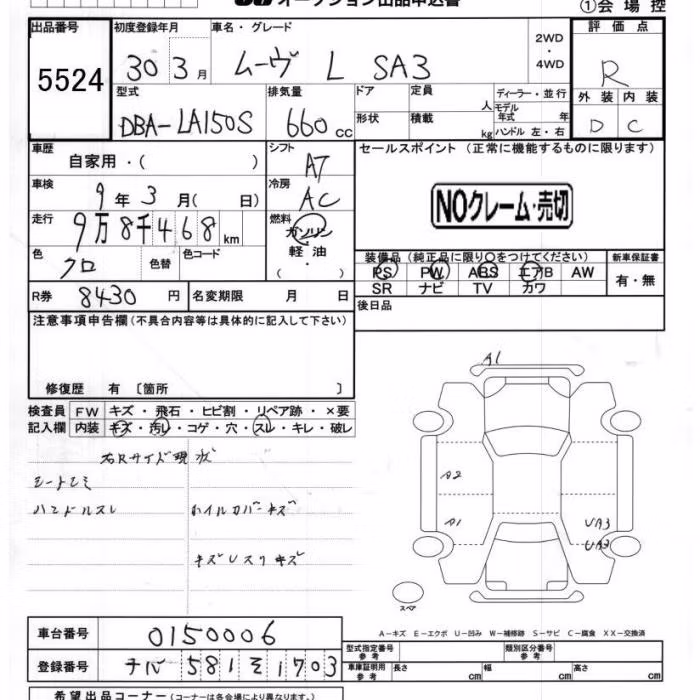 オークション出品申込書
①会場控
出品番号 5524
初度登録年月 30 3月
車名・グレード ムーヴ L SA3
2WD・4WD
評価点 R
型式 DBA-LA150S
排気量 660 cc
ドア
定員 人
ディーラー・並行
モデル年式 年
形状
積載 kg
ハンドル 左・右
外装 内装
D C
車歴 自家用・( )
シフト AT
セールスポイント (正常に機能するものに限ります)
車検 9年3月( 日)
冷房 AC
NOクレーム・売切
走行 9万8千468km
燃料 ガソリン
軽油
( ・ )
色 クロ 色替 色コード
装備品 (純正品に限り○をつけてください)
新車保証書
PS PW ABS エアB AW
SR ナビ TV カワ
有・無
R券 8430円
名変期限 月 日
後日品
注意事項申告欄(不具合内容等は具体的に記入して下さい)
修復歴 有 〔箇所 〕
検査員 FW キズ・飛石・ヒビ割・リペア跡・×要
記入欄 内装 キズ・汚レ・コゲ・穴・スレ・キレ・破レ
右Rサイド現状
シートシミ
ハンドルスレ ホイルカバーキズ
キズUスリキズ
A1
A2
A1 UA3
UA3
スペア
A-キズ E-エクボ U-凹み W-補修跡 S-サビ C-腐食 XX-交換済
車台番号 0150006
型式指定番号 参考
類別区分番号 参考
登録番号 チバ 581 そ 1703
車庫証明用 参考 長さ cm 幅 cm 高さ cm
希望出品コーナー (コーナーは各会場により異なります。)